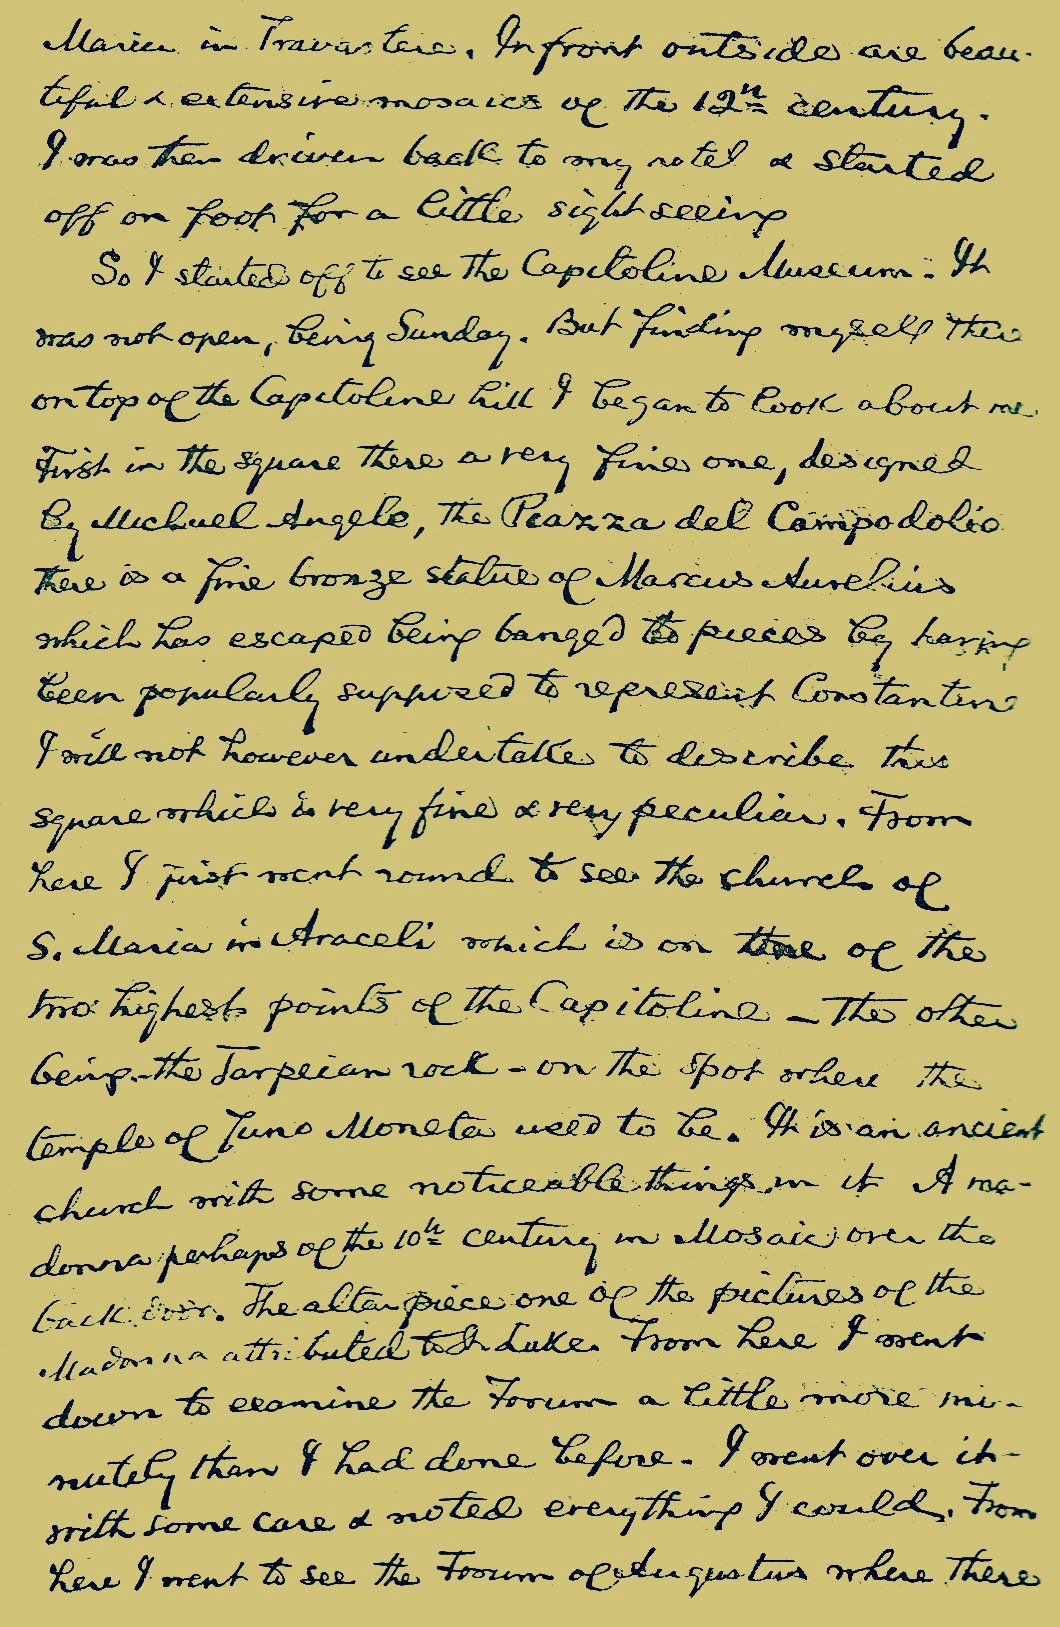 Maria in Travastere. In front outside are beau-
tiful & extensive mosaics of the 12th century.
I was then driven back to my hotel & started
off on foot for a little sight seeing
So I started off to see the Capitoline Museum. It
was not open, being Sunday. But finding myself there
on top of the Capitoline hill I began to look about me
First in the square there a very fine one, designed
by Michael Angelo, the Piazza del Campodolio
there is a fine bronze statue of Marcus Aurelius
which has escaped being banged to pieces by having
been popularly supposed to represent Constantine
I will not however undertake to describe this
square which is very fine & very peculiar. From
here I first went round to see the church of
S. Maria in Araceli which is on one of the
two highest points of the Capitoline – the other
being the Tarpeian rock – on the spot where the
temple of Juno Moneta used to be. It is an ancient
church with some noticeable things in it A ma-
donna perhaps of the 10th century in Mosaic over the
back door. The altar piece one of the pictures of the
Madonna attributed to St Luke. From here I went
down to examine the Forum a little more mi-
nutely than I had done before – I went over it
with some care & noted everything I could. From
here I went to see the Forum of Augustus where there